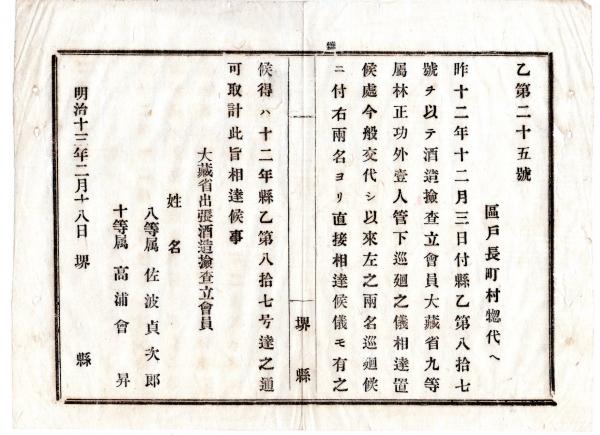 乙第二十五號
區戸長町村惣代ヘ
昨十二年十二月三日付縣乙第八拾七
號ヲ以テ酒造撿查立會員大藏省九等
属林正功外壹人管下巡廻之儀相達置
候處今般交代シ以來左之兩名巡廻候
ニ付右兩名ヨリ直接相達候儀モ有之
堺縣
候得ハ十二年縣乙第八拾七号達之通
可取計此旨相達候事
大藏省出張酒造撿查立會員
姓名
八等属 佐波貞次郎
十等属 高浦會昇
明治十三年二月十八日 堺縣